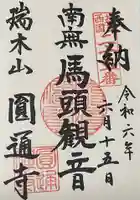 奉納
令和六年
六月十五日
南無馬頭観音
瑞木山
圓通寺